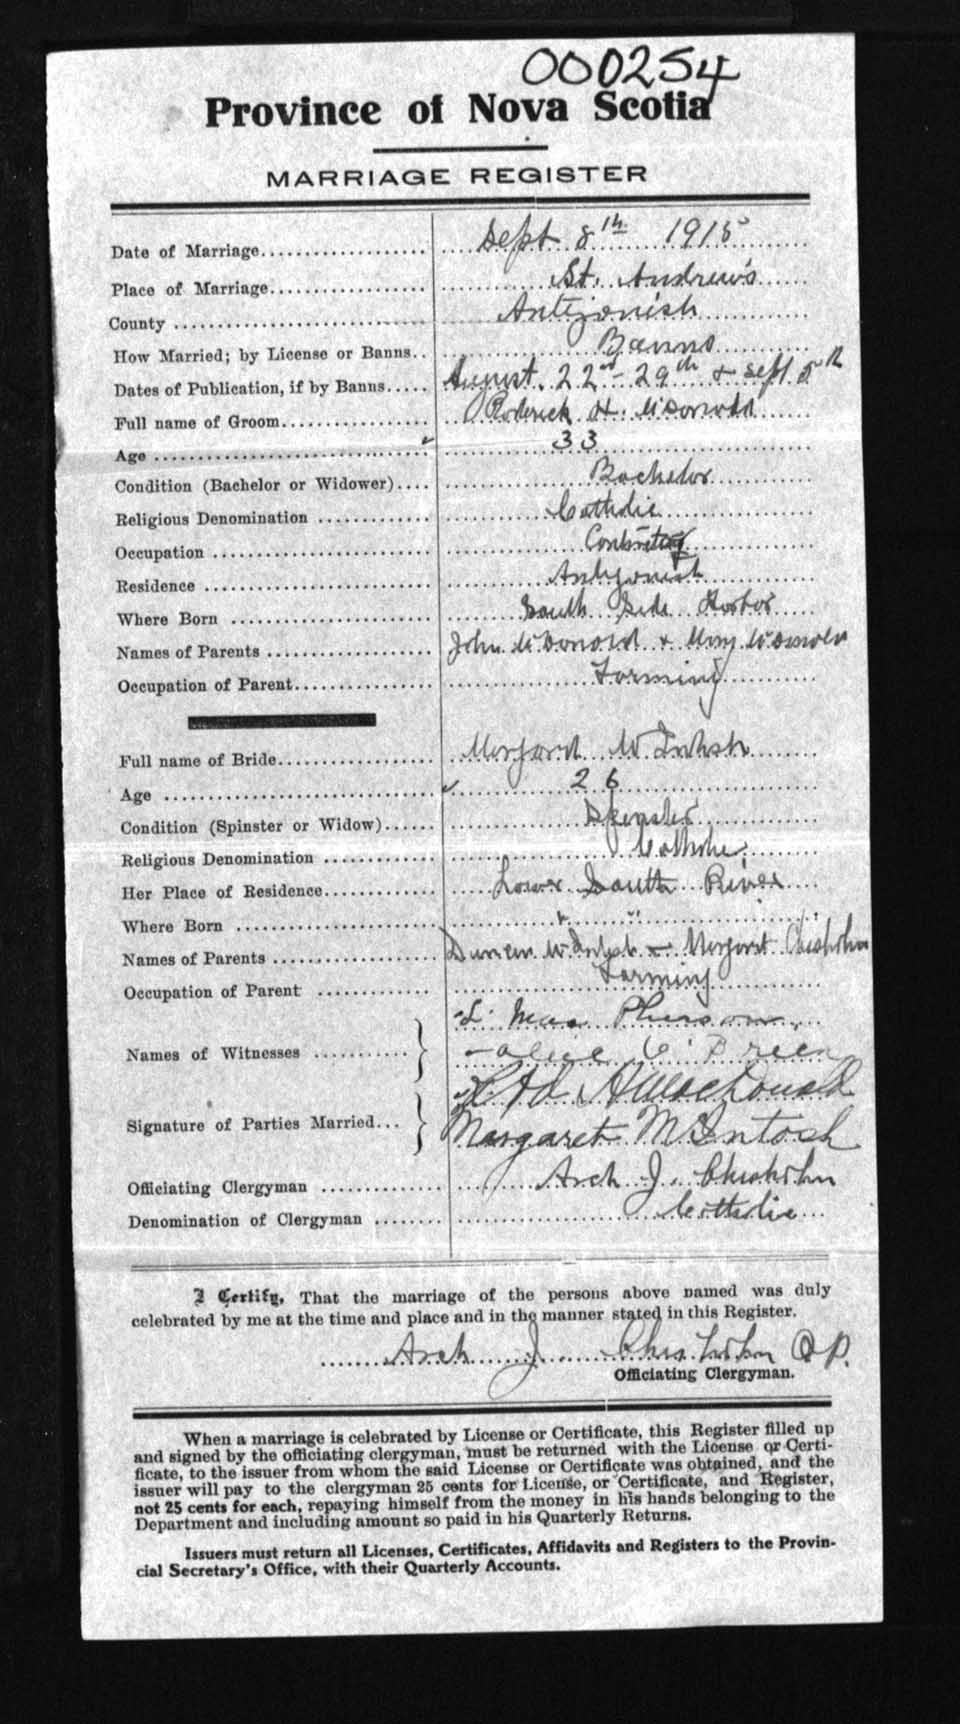 000254
Province of Nova Scotia
MARRIAGE REGISTER
Date of Marriage................... Sept 8th 1915
Place of Marriage.................. St. Andrew's
County ............................ Antigonish
How Married; by License or Banns.. Banns
Dates of Publication, if by Banns..... August 22nd - 29th & Sept 5th
Full name of Groom................. Roderick H. McDonald
Age ............................... 33
Condition (Bachelor or Widower).... Bachelor
Religious Denomination ............ Catholic
Occupation ........................
Residence ......................... Antigonish
Where Born ........................ South Side Harbor
Names of Parents .................. John McDonald & Mary McDonald
Occupation of Parent............... Farming
Full name of Bride................. Margaret McIntosh
Age ............................... 26
Condition (Spinster or Widow)...... Spinster
Religious Denomination ............ Catholic
Her Place of Residence............. Lower South River
Where Born ........................ " "
Names of Parents .................. Duncan McIntosh & Margaret Chisholm
Occupation of Parent .............. Farming
L. MacPherson
Names of Witnesses ...........
Alice C. Breen
A MacDonald
Signature of Parties Married...
Margaret McIntosh
Officiating Clergyman ............. Arch J. Chisholm
Denomination of Clergyman ........ Catholic
I Certify, That the marriage of the persons above named was duly
celebrated by me at the time and place and in the manner stated in this Register.
Arch J. Chisholm P.P.
Officiating Clergyman.
When a marriage is celebrated by License or Certificate, this Register filled up
and signed by the officiating clergyman, must be returned with the License or Certi-
ficate, to the issuer from whom the said License or Certificate was obtained, and the
issuer will pay to the clergyman 25 cents for License, or Certificate, and Register,
not 25 cents for each, repaying himself from the money in his hands belonging to the
Department and including amount so paid in his Quarterly Returns.
Issuers must return all Licenses, Certificates, Affidavits and Registers to the Provin-
cial Secretary's Office, with their Quarterly Accounts.